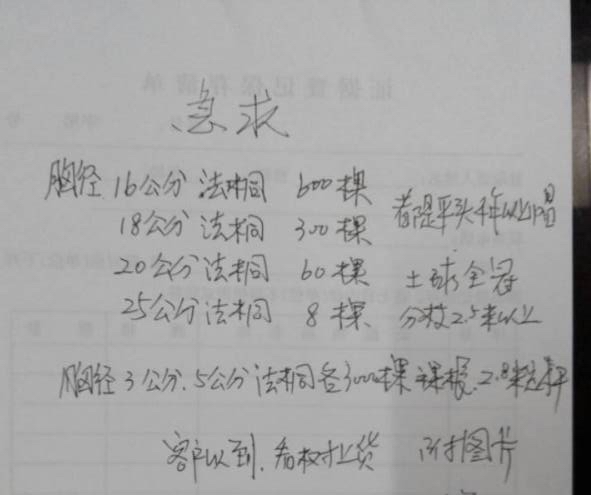 证据登记保存清单
急求
胸径16公分 法桐 600棵
18公分 法桐 300棵 都是平头
20公分 法桐 60棵 土球全冠
25公分 法桐 8棵 分枝2.5米以上
胸径3公分、5公分 法桐各3000棵 裸根、2.8米
客户以到、看 货 附图片